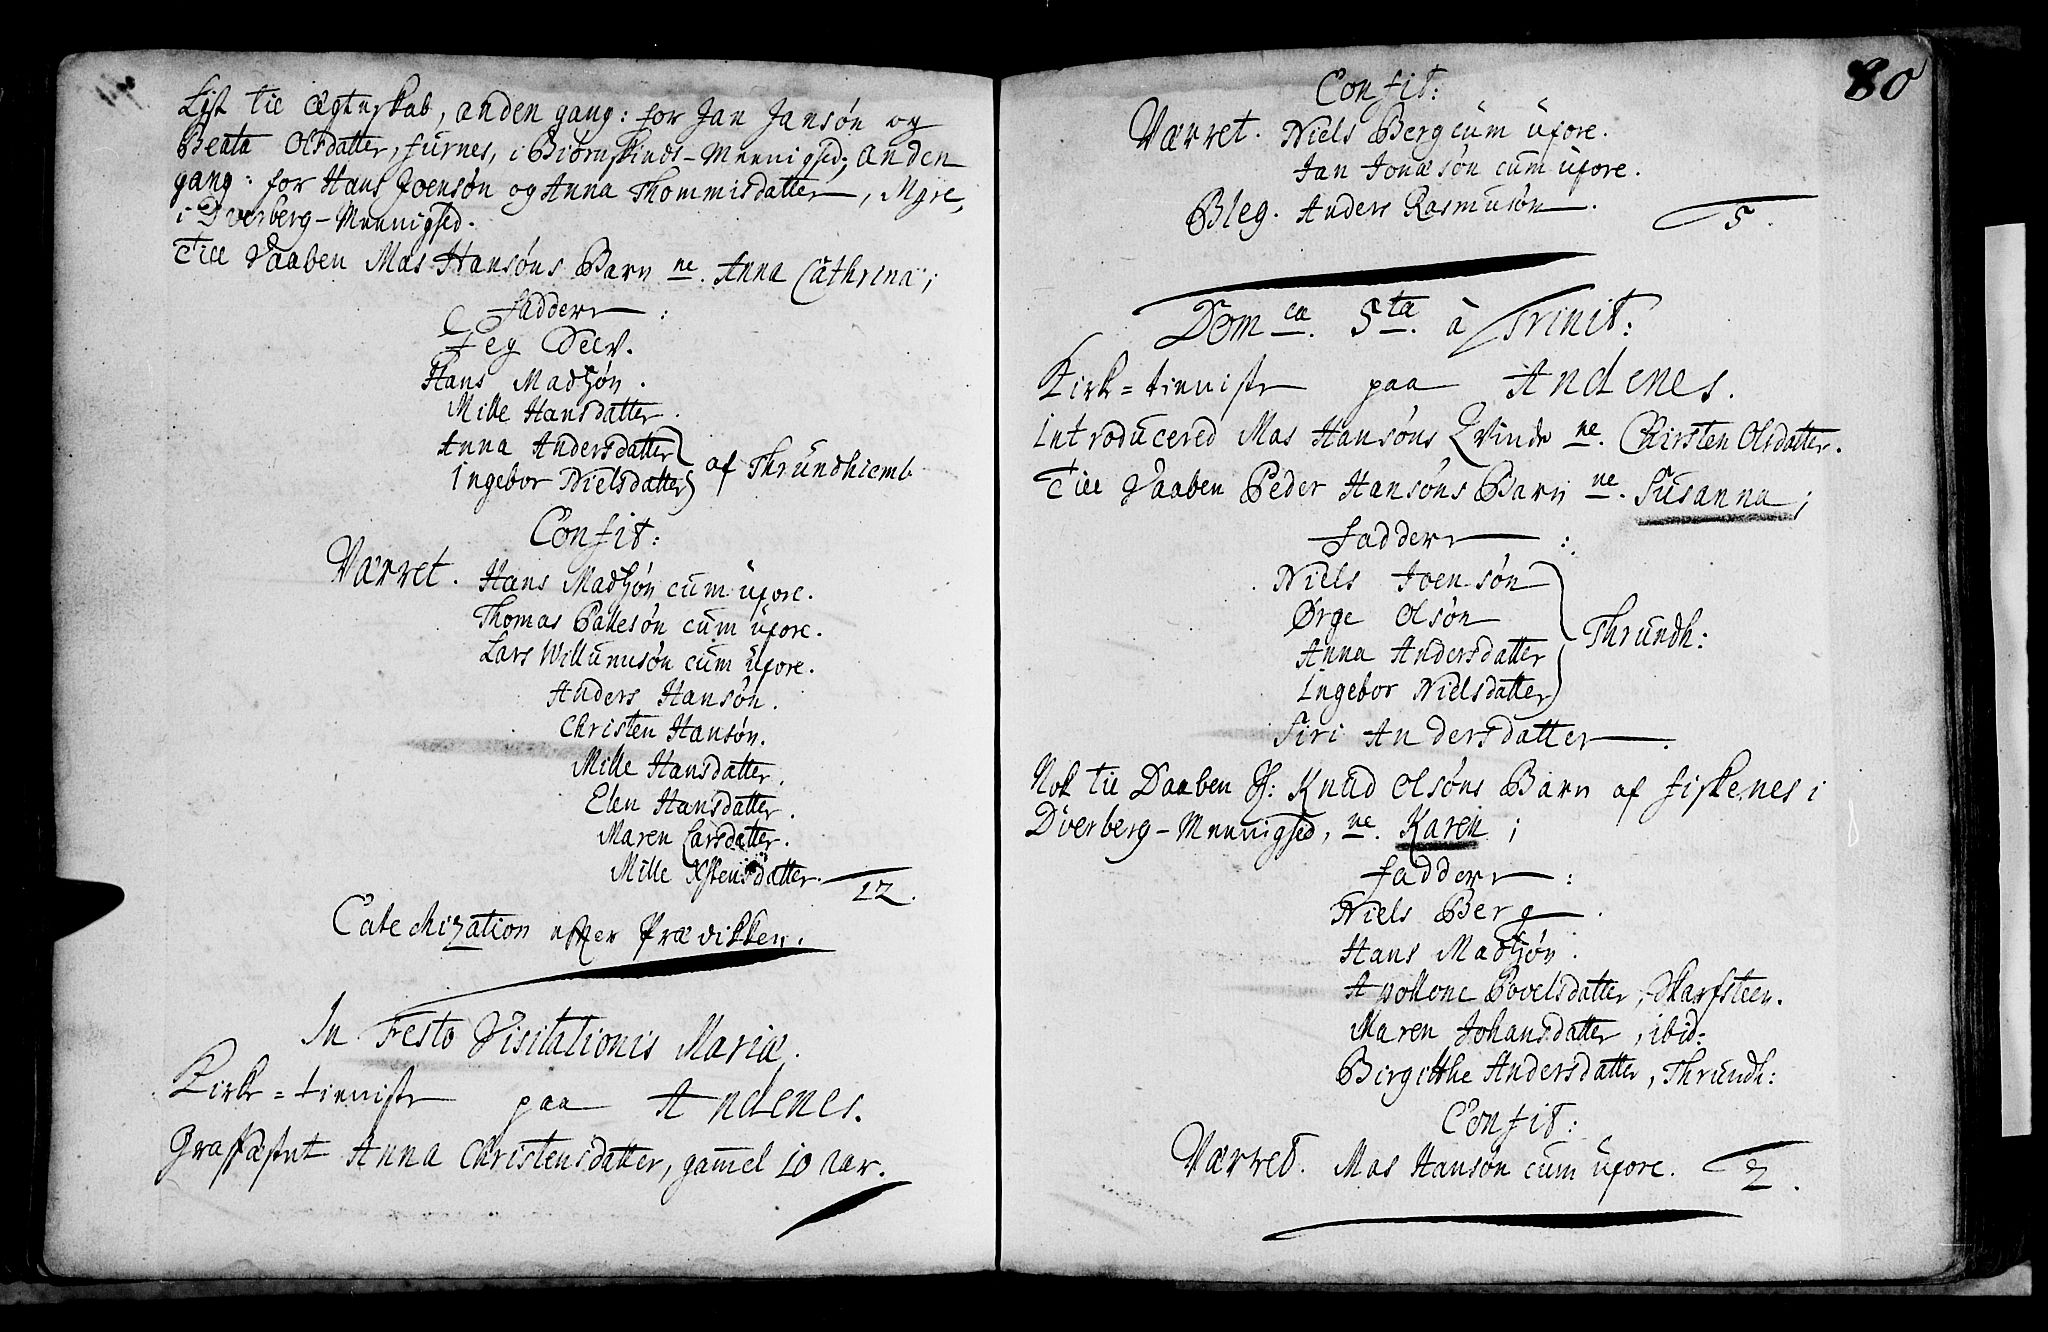 Lyst til Ægteskab, anden gang: for Jan Jansøn og
Beata Olsdatter, Furnes, i Biørnskinds-Meenighed; anden
gang: for Hans Joensøn og Anna Thommisdatter, Myre,
i Dverberg-Meenighed.
Till Daaben Mas Hansøns Barn ne. Anna Cathrina;
Faddere:
Jeg Selv.
Hans Madsøn.
Mille Hansdatter.
Anna Andersdatter
Ingebor Nielsdatter } af Thrundhiemb
Confit:
Værret. Hans Madsøn cum uxore.
Thomas Pallesøn cum uxore.
Lars Willumsøn cum uxore.
Anders Hansøn.
Christen Hansøn.
Mille Hansdatter.
Elen Hansdatter.
Maren Larsdatter.
Mille Xstensdatter. 12.
Catechization efter Prædikken.
In Festo Visitationis Mariæ.
Kirke=tieniste paa Andenes.
Grafkastet Anna Christensdatter, gamel 10 Aar.
80
Confit:
Værret. Niels Berg cum uxore.
Jan Jonæsøn cum uxore.
Bleg. Anders Rasmusøn. 5.
Dom ca. 5 ta. à Trinit:
Kirke=tieniste paa Andenes.
Introducered Mas Hansøns Qvinde ne. Chirsten Olsdatter.
Till Daaben Peder Hansøns Barn ne. Susanna;
Faddere:
Niels Joensøn
Ørge Olsøn
Anna Andersdatter
Ingebor Nielsdatter } Thrundh:
Siri Andersdatter.
Nok til Daaben Knud Olsøns Barn af Fiskenes i
Dverberg-Meenighed, ne. Karen;
Faddere:
Niels Berg.
Hans Madsøn.
Apollone Povelsdatter, Skarfsteen.
Maren Johansdatter, ibid:
Birgitthe Andersdatter, Thrundh:
Confit:
Værret. Mas Hansøn cum uxore. 2.